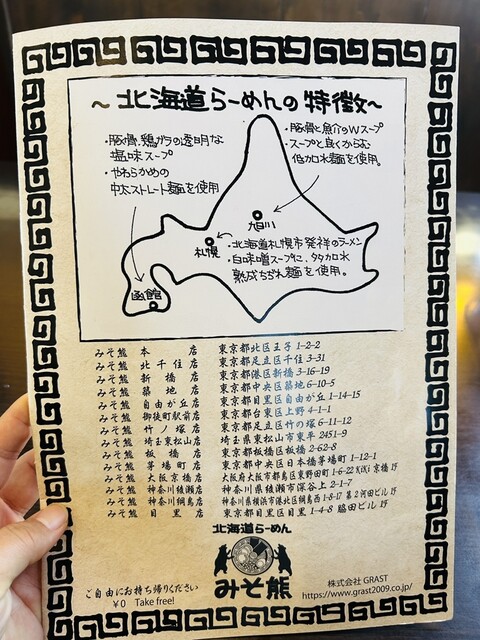 ～北海道らーめんの特徴～
・豚骨、鶏ガラの透明な
塩味スープ
・やわらかめの
中太ストレート麺を使用
・豚骨と魚介のWスープ
・スープと良くからむ
低加水麺を使用。
旭川
札幌
・北海道札幌市発祥のラーメン
・白味噌スープに、多加水
熟成ちぢれ麺を使用。
函館
みそ熊 本店 東京都北区王子 1-2-2
みそ熊 北千住店 東京都足立区千住 3-31
みそ熊 新橋店 東京都港区新橋 3-16-19
みそ熊 築地店 東京都中央区築地 6-10-5
みそ熊 自由が丘店 東京都目黒区自由が丘 1-14-15
みそ熊 御徒町駅前店 東京都台東区上野 4-1-1
みそ熊 竹ノ塚店 東京都足立区竹の塚 6-11-12
みそ熊 埼玉東松山店 埼玉県東松山市東平 2451-9
みそ熊 板橋店 東京都板橋区板橋 2-62-8
みそ熊 茅場町店 東京都中央区日本橋茅場町 1-12-1
みそ熊 大阪京橋店 大阪府大阪市都島区東野田町 1-6-22 K(K) 京橋 1F
みそ熊 神奈川綾瀬店 神奈川県綾瀬市深谷上 2-1-7
みそ熊 神奈川綱島店 神奈川県横浜市港北区綱島西 1-8-17 第2河田ビル 1F
みそ熊 目黒店 東京都目黒区目黒 1-4-8 脇田ビル 1F
北海道らーめん
みそ熊
ご自由にお持ち帰りください
¥0 Take free!
株式会社 GRAST
https://www.grast2009.co.jp/